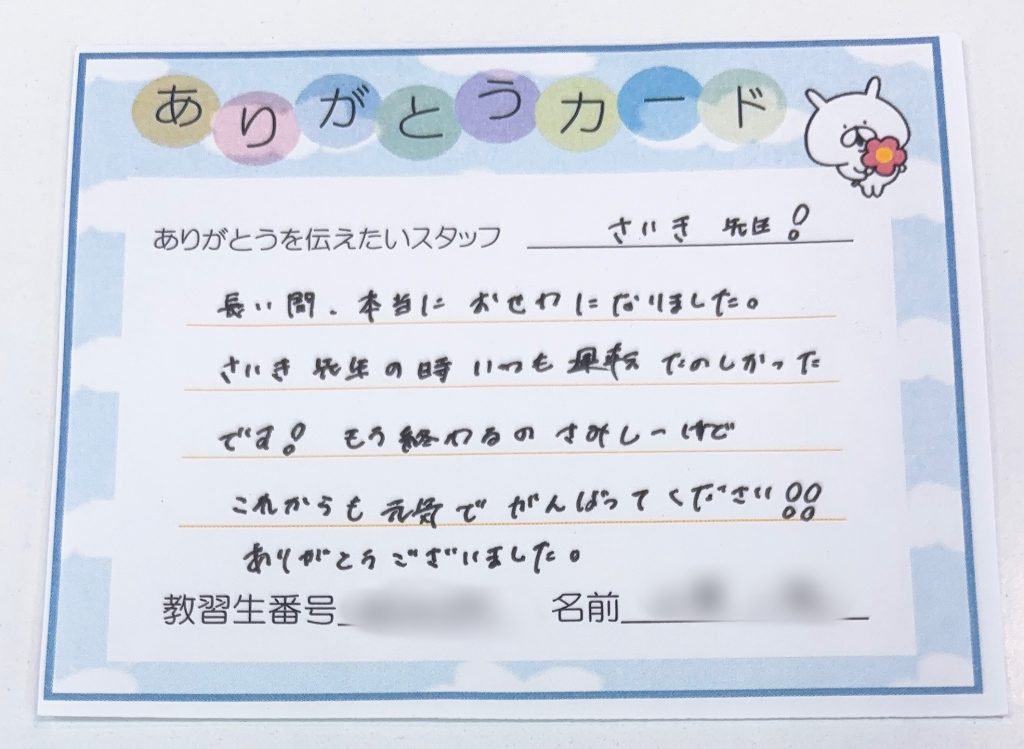 ありがとうカード
ありがとうを伝えたいスタッフ さいき 先生!
長い間、本当に おせわになりました。
さいき 先生の時 いつも 運転 たのしかった
です! もう終わるの さみしーけど
これからも 元気で がんばってください!!
ありがとうございました。
教習生番号 名前